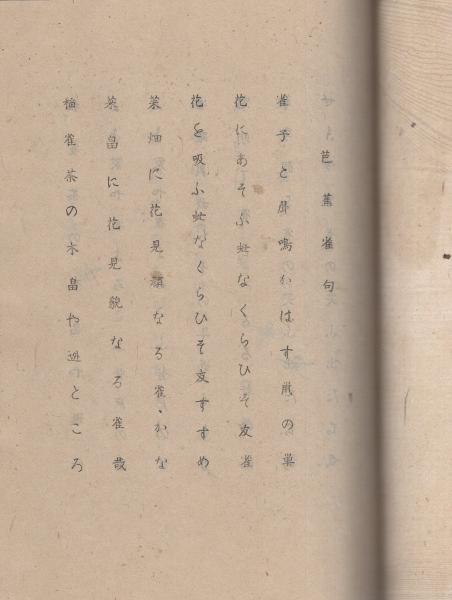 芭蕉雀句
雀子と声鳴かはす鼡の巣
花にあそぶ虻なくらひそ友雀
花を吸ふ虻なくらひそ友すずめ
菜畑に花見顔なる雀かな
菜畠に花見貌なる雀哉
稲雀茶の木畠や逃ところ